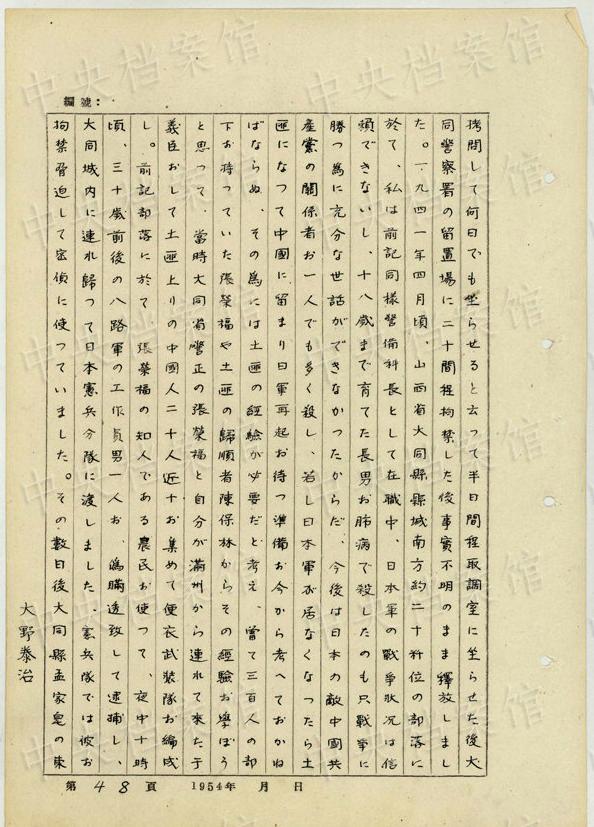 編號：
拷問して何日でも坐らせると云つて半日間程取調室に坐らせた後大
同警察署の留置場に二十間程拘禁した後事實不明のまま釋放しまし
た。一九四一年四月頃、山西省大同縣縣城南方約二十粁位の部落に
於て、私は前記同様警備科長として在職中、日本軍の戰爭狀況は信
頼できないし、十八歳まで育てた長男お肺病で殺したのも只戰爭に
勝つ為に充分な世話ができなかつたからだ、今後は日本の敵中國共
產黨の關係者お一人でも多く殺し、若し日本軍が居なくなつたら土
匪になつて中國に留まり日軍再起お待つ準備お今から考へておかね
ばならぬ、その為には土匪の經驗が必要だと考え、曽て三百人の部
下お持つていた張榮福や土匪の歸順者陳保林からその經驗お學ぼう
と思つて、當時大同省警正の張榮福と自分が滿州から連れて來た于
義臣おして土匪上りの中國人二十人近十お集めて便衣武裝隊お編成
し。前記部落に於て張榮福の知人である農民お使つて、夜中十時
頃、三十歳前後の八路軍の工作員男一人お、瞞透致して逮捕し、
大同城内に連れ歸つて日本憲兵分隊に渡しました、憲兵隊では彼お
拘禁脅迫して密偵に使つていました。その數日後大同縣孟家皂の東
大野泰治
第48頁 1954年 月 日
中央档案馆